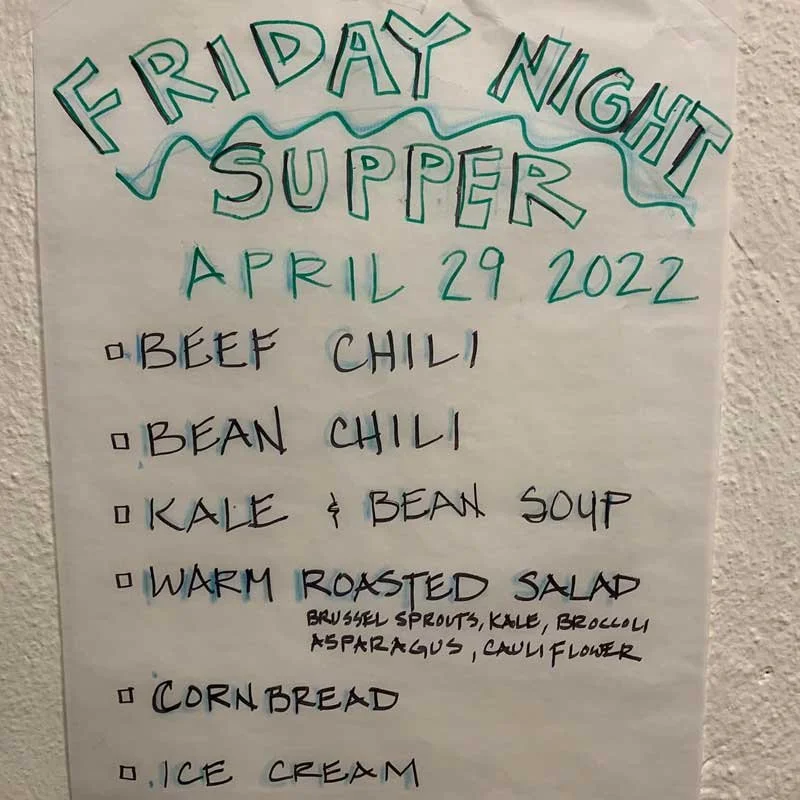 FRIDAY NIGHT
SUPPER
APRIL 29 2022
BEEF CHILI
BEAN CHILI
KALE & BEAN SOUP
WARM ROASTED SALAD
BRUSSEL SPROUTS, KALE, BROCCOLI
ASPARAGUS, CAULIFLOWER
CORNBREAD
ICE CREAM